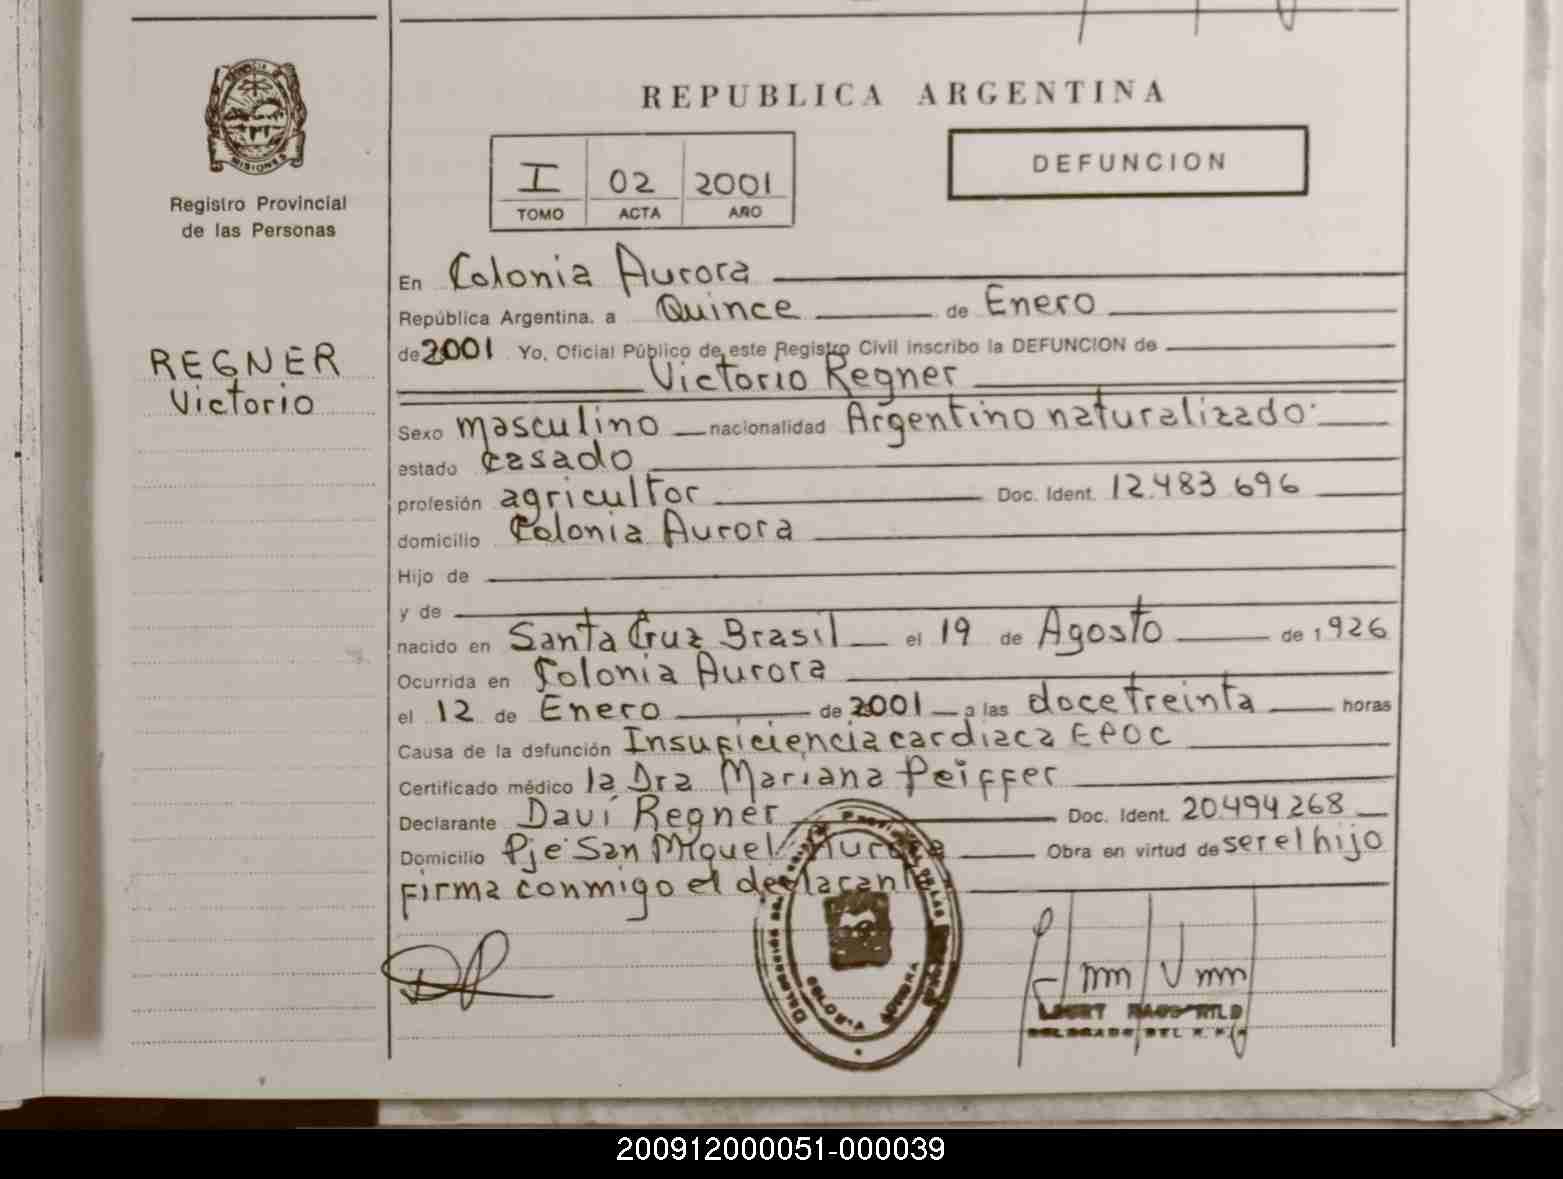 REPUBLICA ARGENTINA
PROVINCIA DE
MISIONES
Registro Provincial
de las Personas
I 02 2001
TOMO ACTA AÑO
DEFUNCION
REGNER
Victorio
En Colonia Aurora
República Argentina, a Quince de Enero
de 2001 Yo, Oficial Público de este Registro Civil inscribo la DEFUNCION de
Victorio Regner
Sexo masculino nacionalidad Argentino naturalizado.
estado casado
profesión agricultor Doc. Ident. 12.483.696
domicilio Colonia Aurora
Hijo de
y de
nacido en Santa Cruz Brasil el 19 de Agosto de 1926
Ocurrida en Colonia Aurora
el 12 de Enero de 2001 a las doce treinta horas
Causa de la defunción Insuficiencia cardiaca EPOC
Certificado médico la Dra Mariana Peiffer
Declarante Daví Regner Doc. Ident. 20.494.268
Domicilio Pje San Miguel Aurora Obra en virtud de ser el hijo
firma conmigo el declarante
COLONIA AURORA
DELEGADO DEL R. P. P.
200912000051-000039